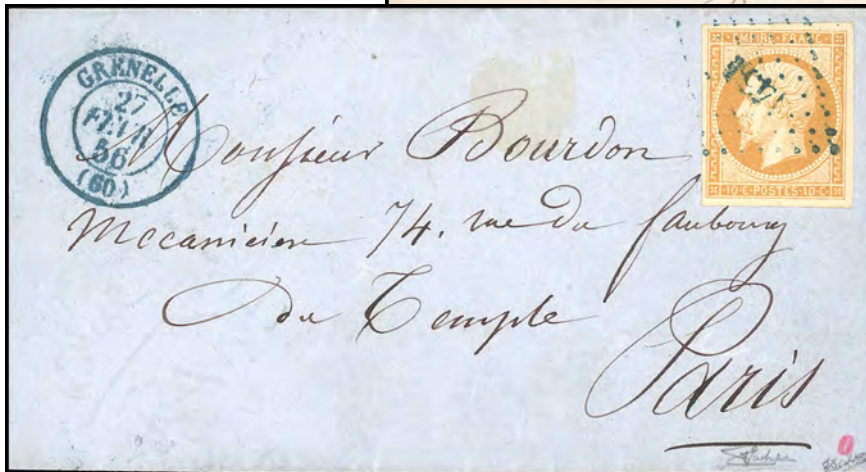 GRENELLE
27
FEVR
56
(60)
EMPIRE FRANC
10·C·POSTES·10·C
Monsieur Bourdon
Mecanicien 74. rue du faubourg
du Temple
Paris